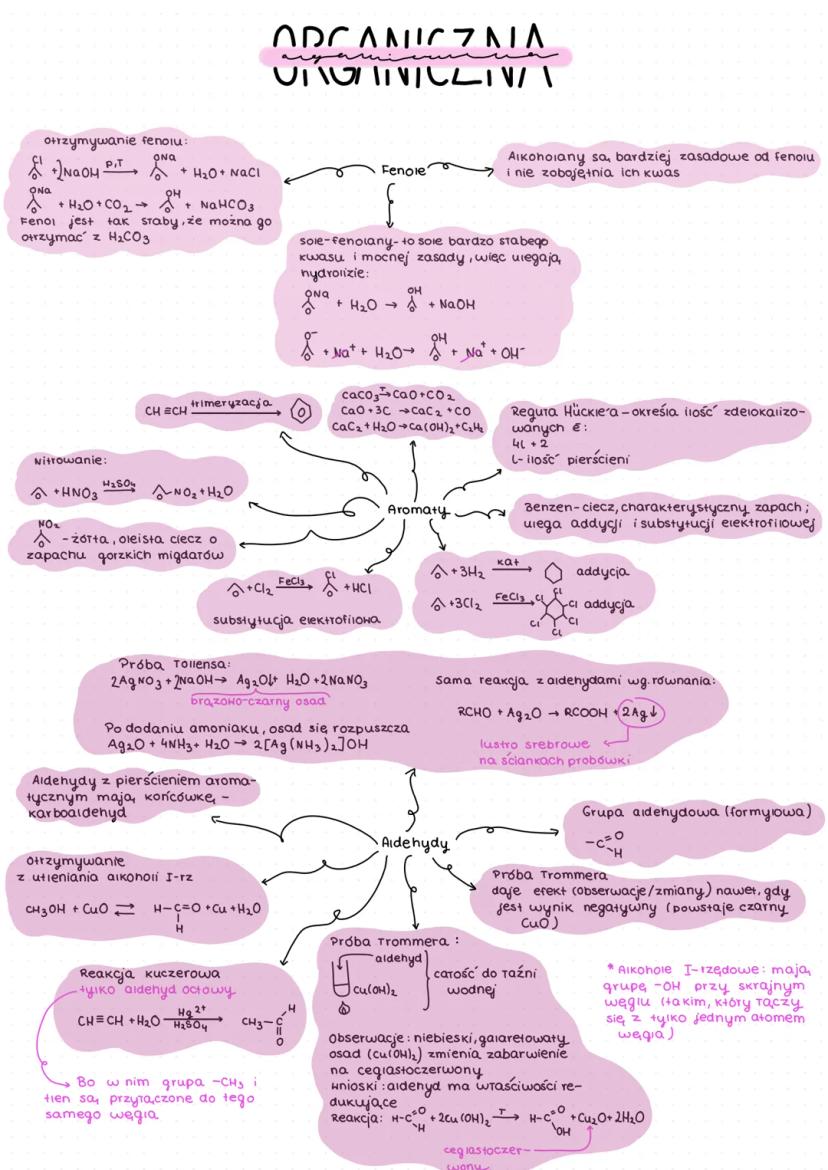 ORGANICZNA
organiczna
otrzymywanie fenolu:
Cl + 2NaOH p,T → ONa + H₂O + NaCl
ONa + H₂O + CO₂ → OH + NaHCO₃
Fenol jest tak słaby, że można go
otrzymać z H₂CO₃
Fenole
Alkoholany są bardziej zasadowe od fenolu
i nie zobojętnia ich kwas
sole-fenolany- to sole bardzo słabego
kwasu i mocnej zasady, więc ulegają
hydrolizie:
ONa + H₂O → OH + NaOH
O⁻ + Na⁺ + H₂O → OH + Na⁺ + OH⁻
CH≡CH trimeryzacja →
CaCO₃ T→ CaO + CO₂
CaO + 3C → CaC₂ + CO
CaC₂ + H₂O → Ca(OH)₂ + C₂H₂
Reguła Hückle'a – określa ilość zdelokalizo-
wanych e:
4l + 2
l- ilość pierścieni
Nitrowanie:
+ HNO₃ H₂SO₄ → NO₂ + H₂O
Aromaty
Benzen- ciecz, charakterystyczny zapach;
ulega addycji i substytucji elektrofilowej
NO₂ - żółta, oleista ciecz o
zapachu gorzkich migdałów
+ Cl₂ FeCl₃ → Cl + HCl
substytucja elektrofilowa
+ 3H₂ kat → addycja
+ 3Cl₂ FeCl₃ → Cl Cl Cl Cl Cl Cl addycja
Próba Tollensa:
2AgNO₃ + 2NaOH → Ag₂O↓ + H₂O + 2NaNO₃
brązowo-czarny osad
Po dodaniu amoniaku, osad się rozpuszcza
Ag₂O + 4NH₃ + H₂O → 2[Ag(NH₃)₂]OH
Sama reakcja z aldehydami wg. równania:
RCHO + Ag₂O → RCOOH + 2Ag↓
lustro srebrowe
na ściankach probówki
Aldehydy z pierścieniem aroma-
tycznym mają końcówkę -
karboaldehyd
Aldehydy
Grupa aldehydowa (formylowa)
-C=O H
Otrzymywanie
z utleniania alkoholi I-rz
CH₃OH + CuO ⇌ H-C=O H + Cu + H₂O
Próba Trommera
daje efekt (obserwacje/zmiany) nawet, gdy
jest wynik negatywny (powstaje czarny
CuO)
Reakcja kuczerowa
tylko aldehyd octowy
CH≡CH + H₂O Hg²⁺ H₂SO₄ → CH₃-C H O
Bo w nim grupa -CH₃ i
tlen są przyłączone do tego
samego węgla
Próba Trommera:
aldehyd
Cu(OH)₂
całość do łaźni
wodnej
Obserwacje: niebieski, galaretowaty
osad (Cu(OH)₂) zmienia zabarwienie
na ceglastoczerwony
Wnioski: aldehyd ma właściwości re-
dukujące
Reakcja: H-C=O H + 2Cu(OH)₂ T→ H-C=O OH + Cu₂O + 2H₂O
ceglastoczer-
wony
* Alkohole I-rzędowe: mają
grupę -OH przy skrajnym
węglu (takim, który łączy
się z tylko jednym atomem
węgla)